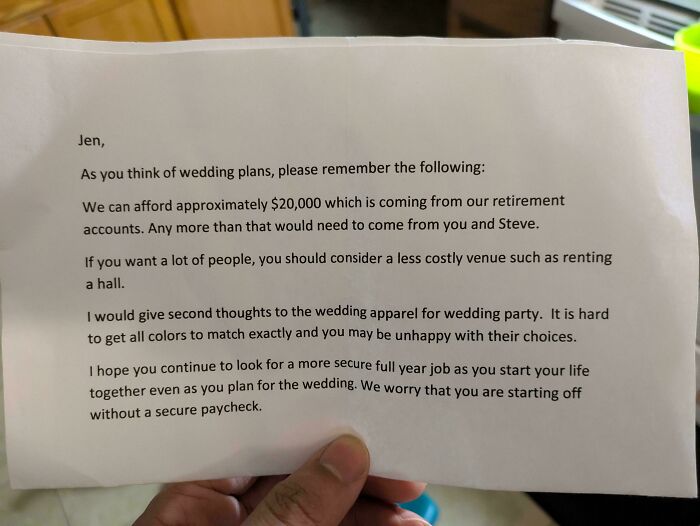 Jen,
As you think of wedding plans, please remember the following:
We can afford approximately $20,000 which is coming from our retirement
accounts. Any more than that would need to come from you and Steve.
If you want a lot of people, you should consider a less costly venue such as renting
a hall.
I would give second thoughts to the wedding apparel for wedding party.  It is hard
to get all colors to match exactly and you may be unhappy with their choices.
I hope you continue to look for a more secure full year job as you start your life
together even as you plan for the wedding. We worry that you are starting off
without a secure paycheck.